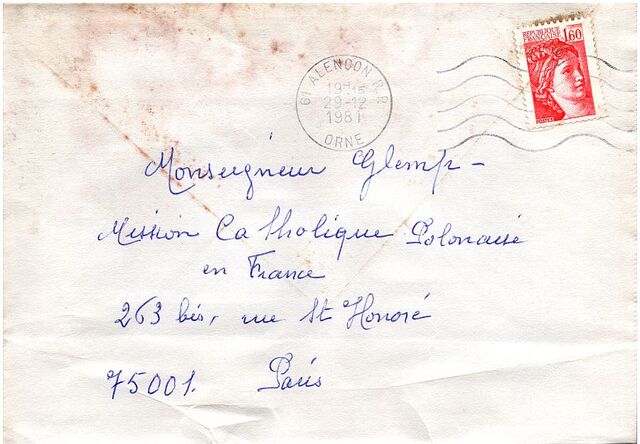 RÉPUBLIQUE
FRANÇAISE 1,60
POSTES
61 ALENCON R.P.
19H15
29-12
1981
ORNE
Monseigneur Glemp -
Mission Catholique Polonaise
en France
263 bis, rue St Honoré
75001. Paris